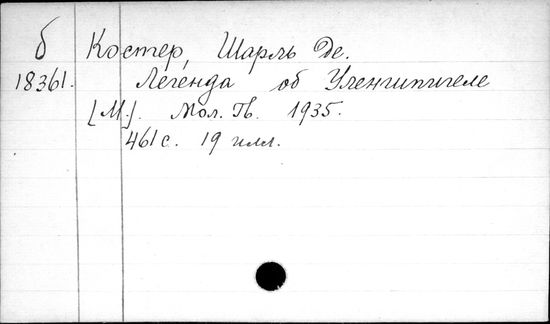 б Костер, Шарль Де.
18361. Легенда об Уленшпигеле
[М.]. Мол. Гв. 1935.
461 с. 19 илл.